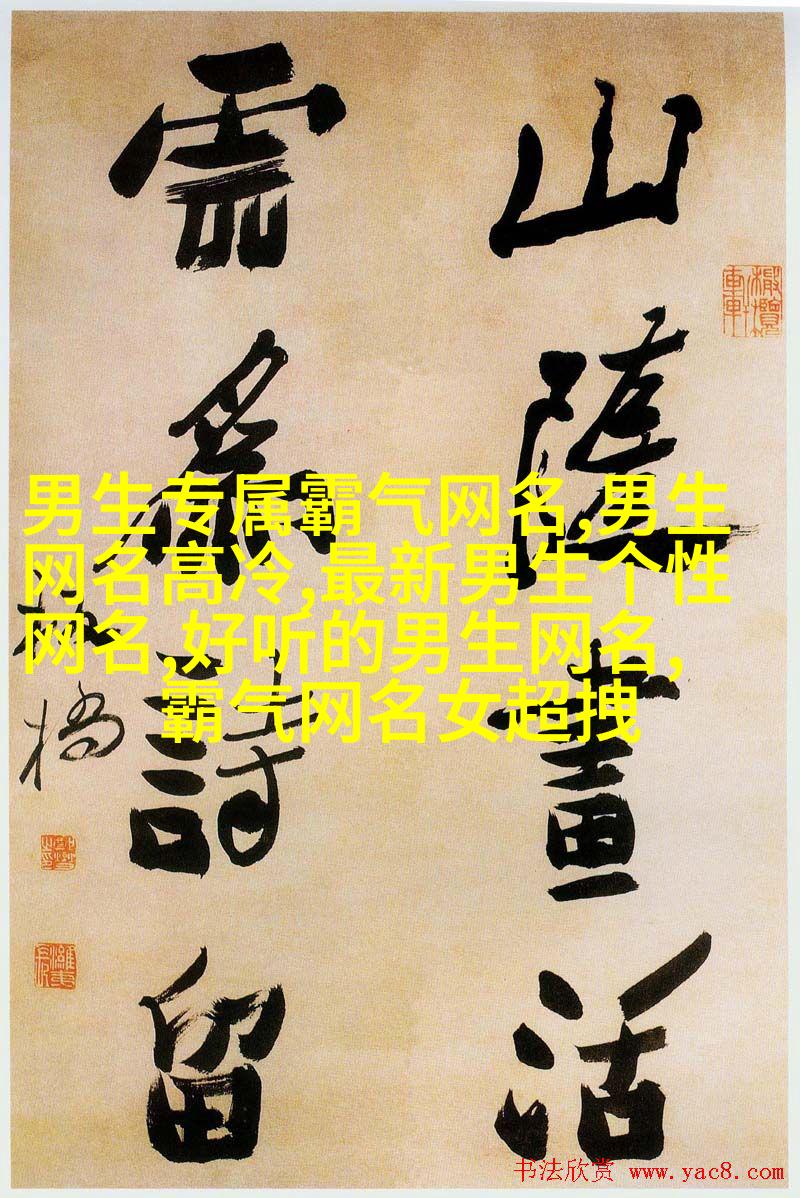 山隨畫活
雲為詩留
板橋
男生专属霸气网名,男生
网名高冷,最新男生个性
网名,好听的男生网名,
霸气网名女超拽
书法欣赏 www.yac8.com